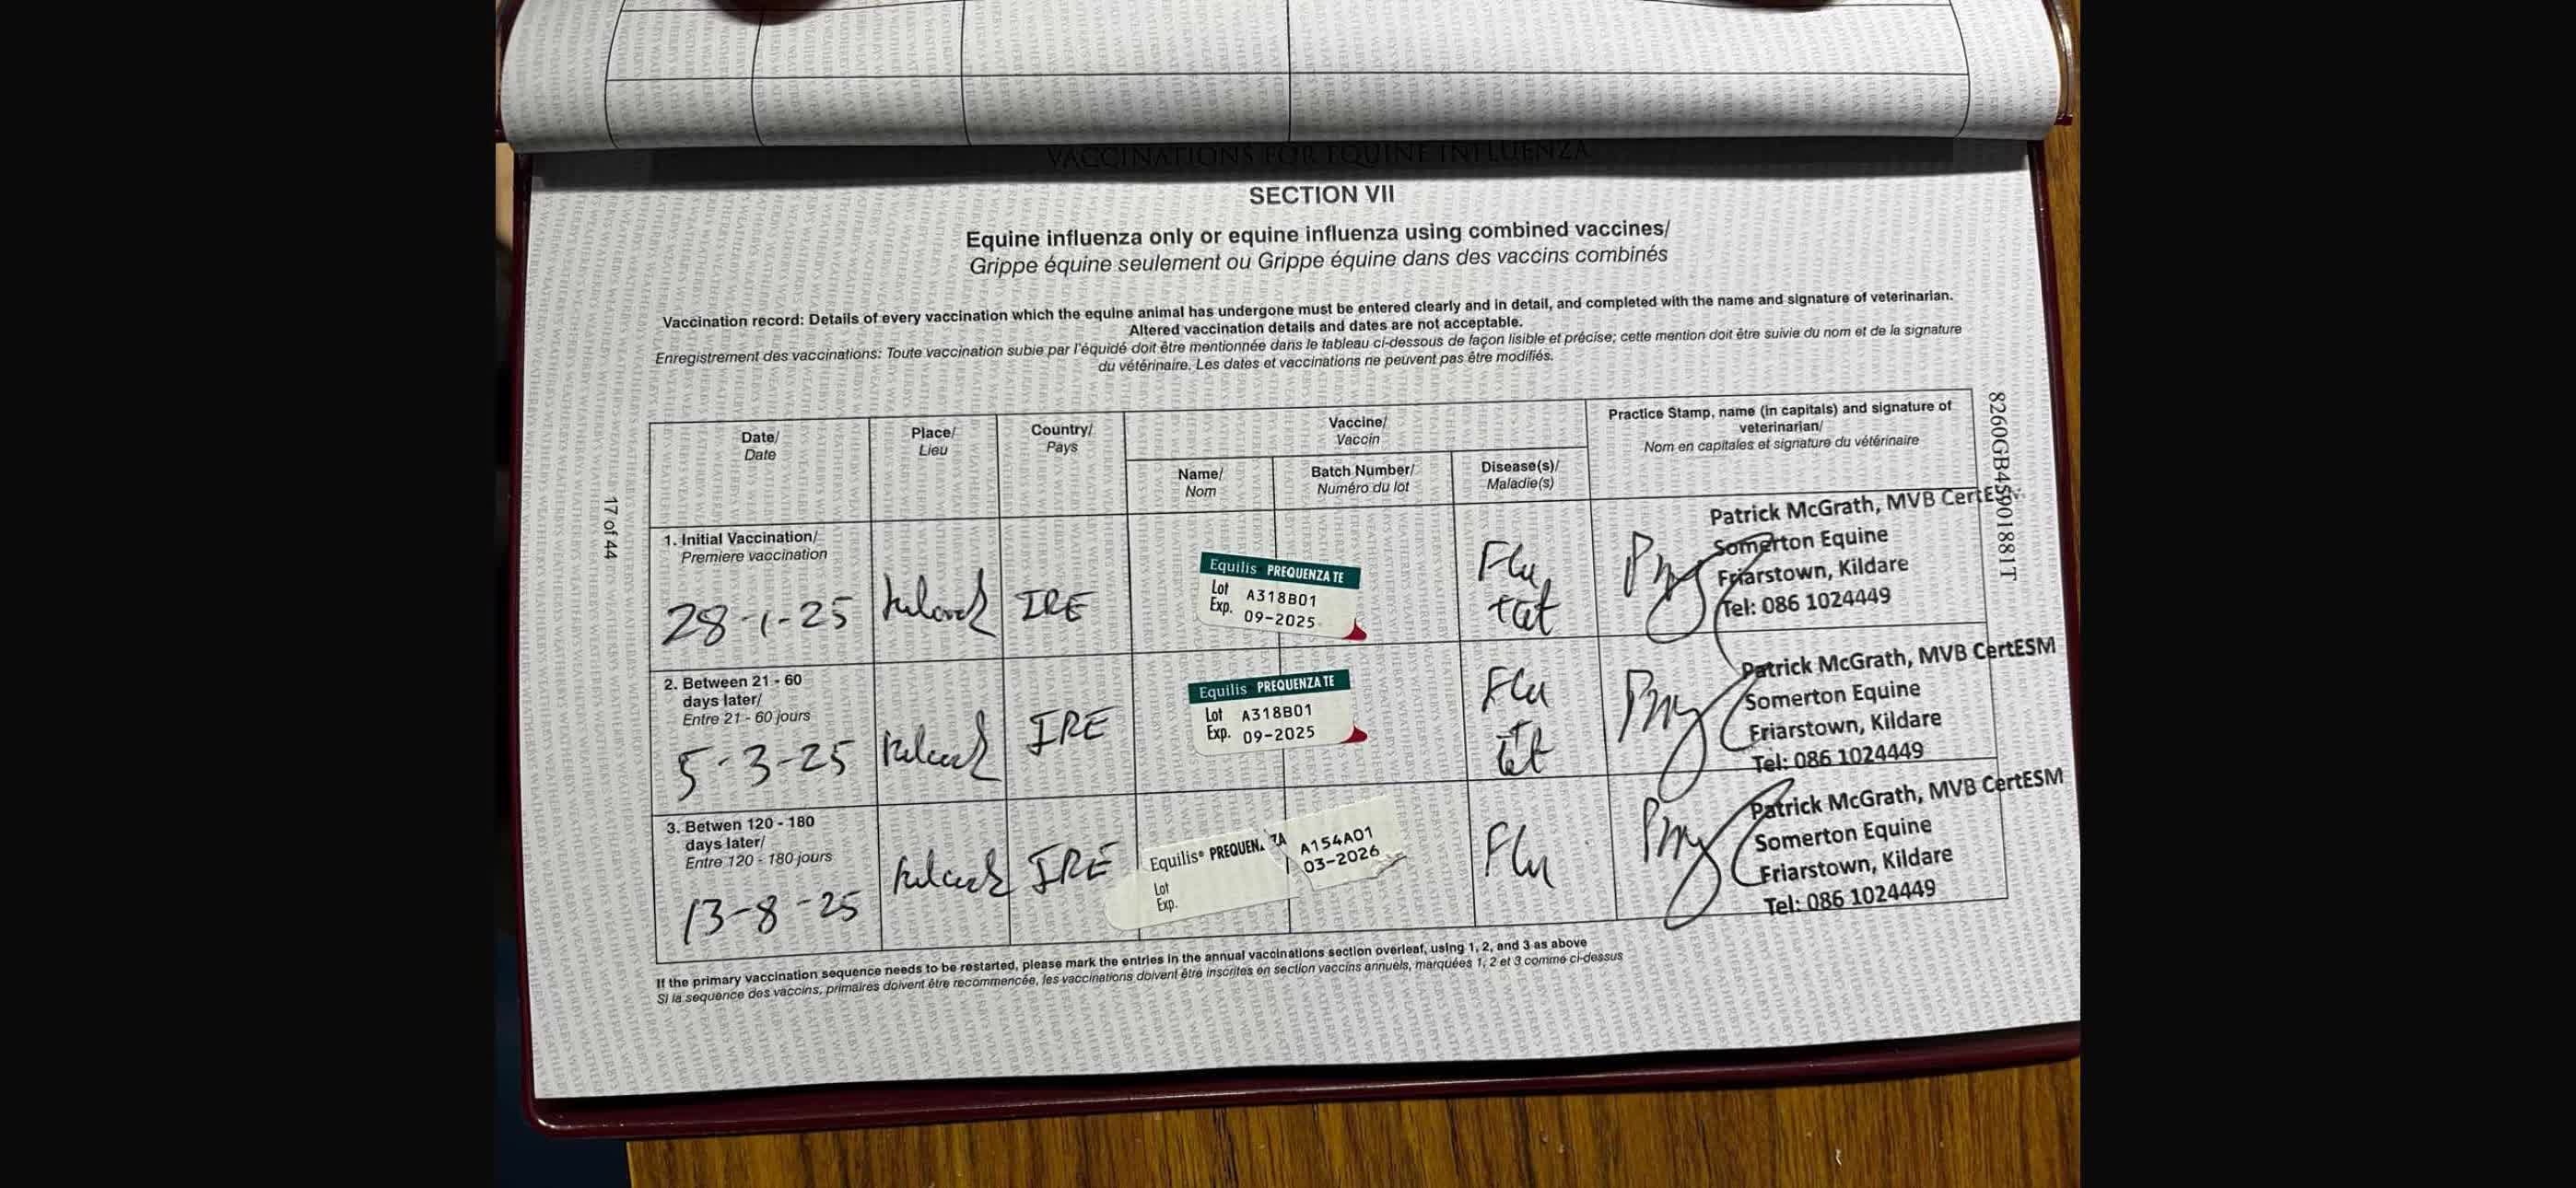 VACCINATIONS FOR EQUINE INFLUENZA
SECTION VII
Equine influenza only or equine influenza using combined vaccines/
Grippe équine seulement ou Grippe équine dans des vaccins combinés
Vaccination record: Details of every vaccination which the equine animal has undergone must be entered clearly and in detail, and completed with the name and signature of veterinarian.
Altered vaccination details and dates are not acceptable.
Enregistrement des vaccinations: Toute vaccination subie par l'équidé doit être mentionnée dans le tableau ci-dessous de façon lisible et précise; cette mention doit être suivie du nom et de la signature
du vétérinaire. Les dates et vaccinations ne peuvent pas être modifiés.
Date/
Date
Place/
Lieu
Country/
Pays
Vaccine/
Vaccin
Name/
Nom
Batch Number/
Numéro du lot
Disease(s)/
Maladie(s)
Practice Stamp, name (in capitals) and signature of
veterinarian/
Nom en capitales et signature du vétérinaire
1. Initial Vaccination/
Premiere vaccination
28-1-25
IRE
Equilis PREQUENZA TE
Lot A318B01
Exp. 09-2025
Flu,
tet
Patrick McGrath, MVB CertESM
Somerton Equine
Friarstown, Kildare
Tel: 086 1024449
2. Between 21 - 60
days later/
Entre 21 - 60 jours
5-3-25
IRE
Equilis PREQUENZA TE
Lot A318B01
Exp. 09-2025
Flu
tet
Patrick McGrath, MVB CertESM
Somerton Equine
Friarstown, Kildare
Tel: 086 1024449
3. Betwen 120 - 180
days later/
Entre 120 - 180 jours
13-8-25
IRE
Equilis® PREQUENZA
Lot
Exp.
A154A01
03-2026
Flu
Patrick McGrath, MVB CertESM
Somerton Equine
Friarstown, Kildare
Tel: 086 1024449
If the primary vaccination sequence needs to be restarted, please mark the entries in the annual vaccinations section overleaf, using 1, 2, and 3 as above
Si la sequence des vaccins, primaires doivent être recommencée, les vaccinations doivent être inscrites en section vaccins annuels, marquées 1, 2 et 3 comme ci-dessus
17 of 44
8260GB45901881T